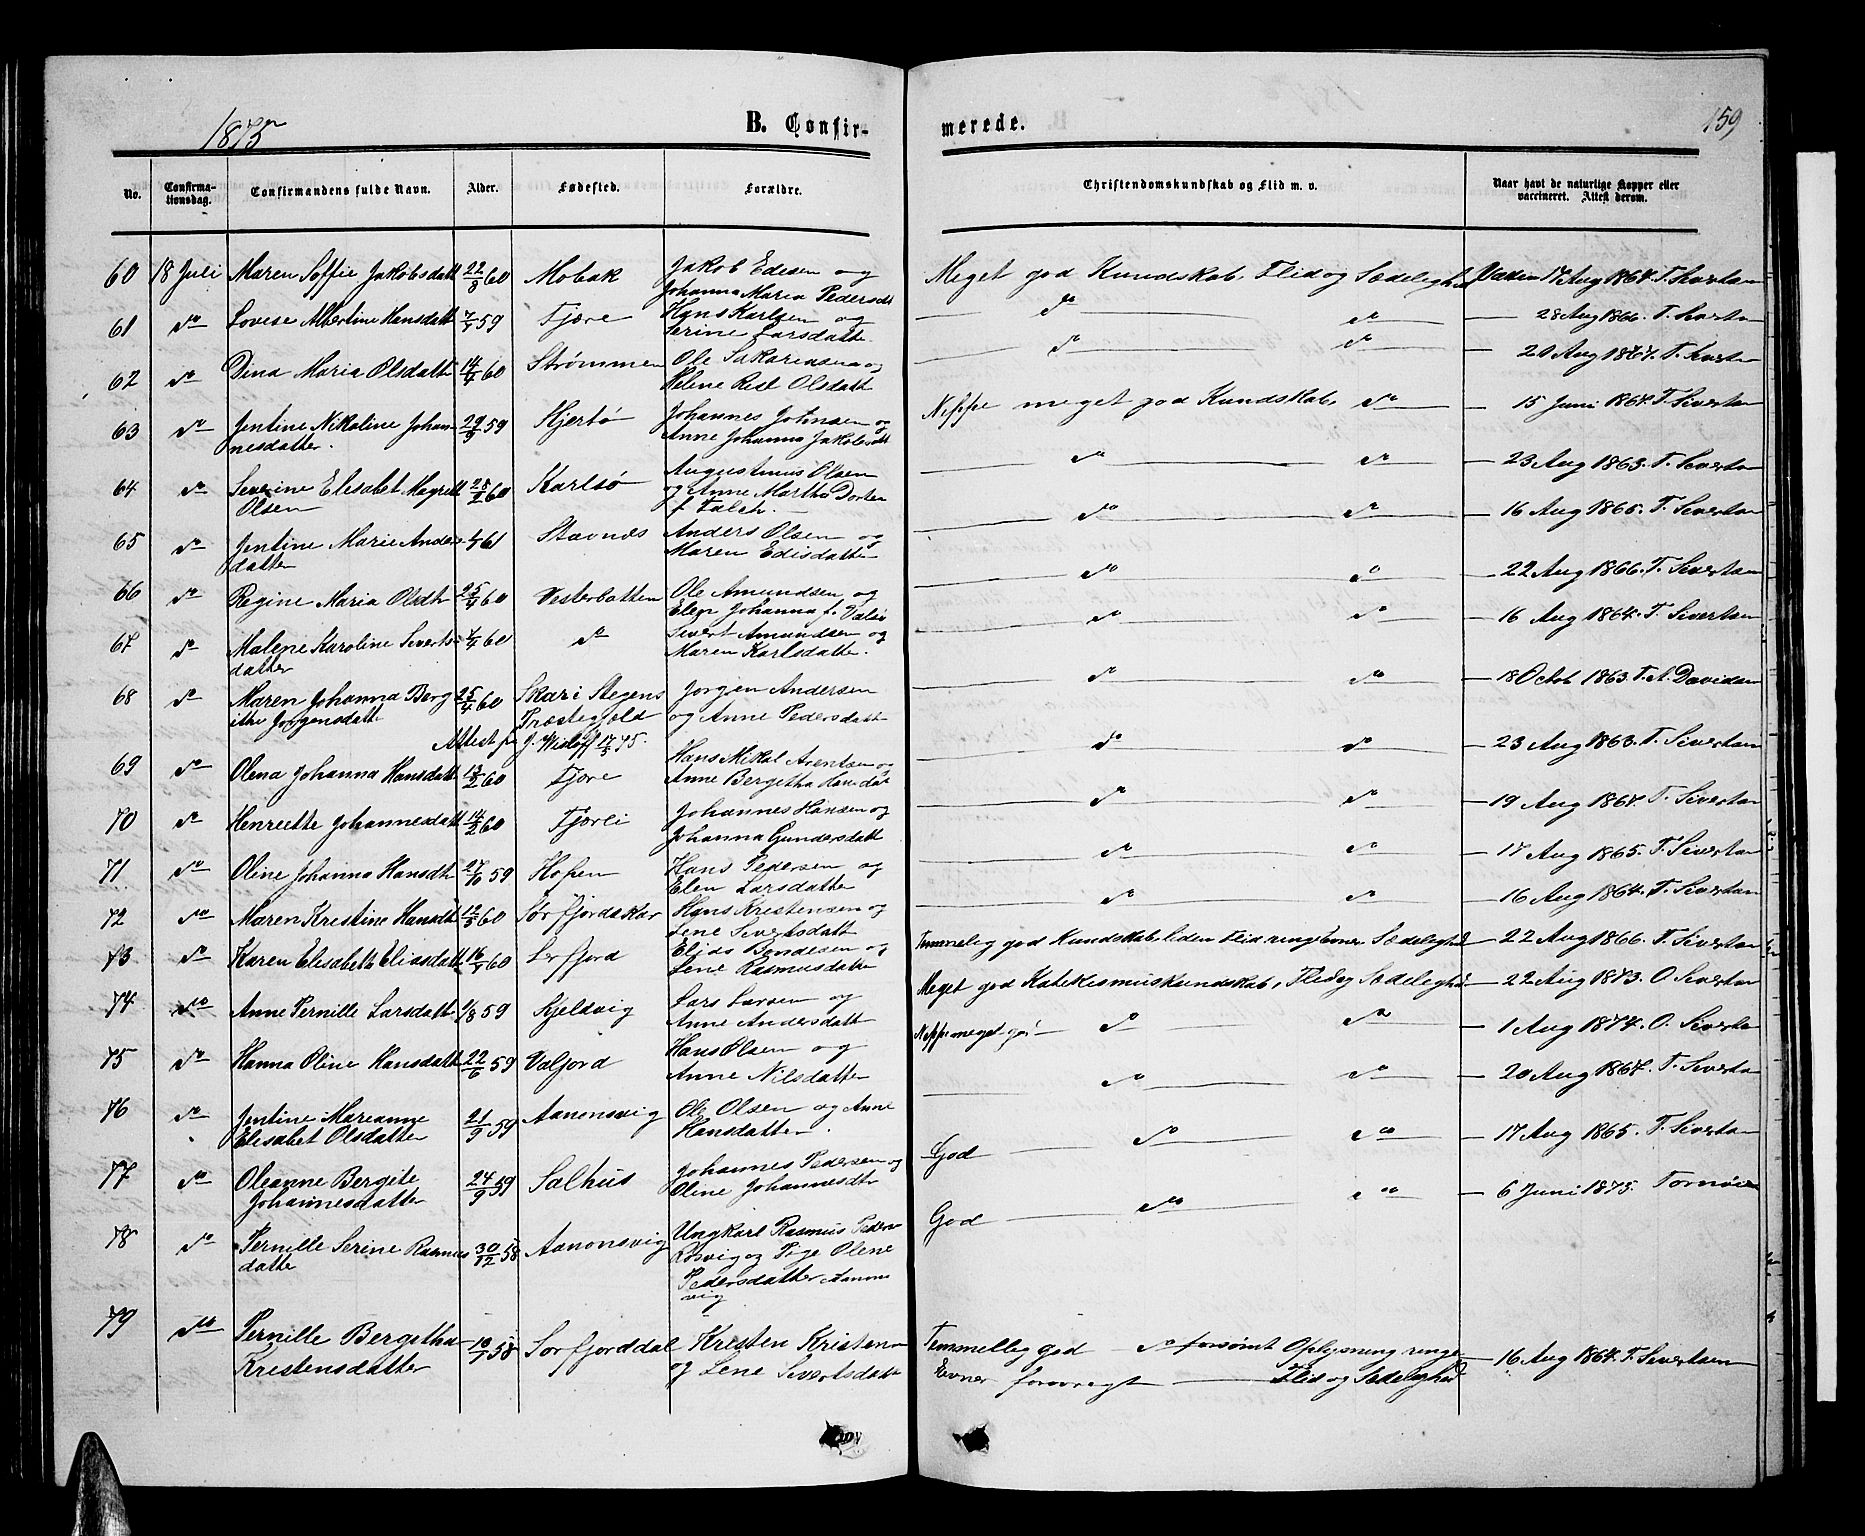 1875
B. Confir-
merede.
159
No.
Confirma-
tionsdag.
Confirmandens fulde Navn.
Alder.
Fødested.
Forældre.
Christendomskundskab og Flid m. v.
Naar havt de naturlige Kopper eller
vaccineret. Attest derom.
60 18 Juli Maren Soffie Jakobsdatt 22/8 60 Mobak Jakob Edisen og
Johanna Maria Pedersdt
Meget god Kundskab, Flid og Sædelighed Vaxin 17 Aug 1864. T. Sivertsen
61 do Lovise Albertine Hansdatt 59 Fjære Hans Karlsen og
Serine Larsdatter
do do 28 Aug 1866. T. Sivertsen
62 do Dina Maria Olsdatt 14/4 60 Strømmen Ole Sakariasen og
Helene Rist Olsdatt
do do 20 Aug 1867. T. Sivertsen
63 do Jentine Nikoline Johan- 29/9 59 Hjertø Johannes Johnsen og
nesdatter. Anne Johanna Jakobsdt
Neppe meget god Kundskab, do 15 Juni 1864. T. Sivertsen
64 do Severine Elisabet Magrete 28/2 60 Karlsø Augustinus Olsen
Olsen og Anne Martha Dortea
f. Falch.
do do 23 Aug 1863. T. Sivertsen
65 do Jentine Marie Anders 61 Stavnes Anders Olsen og
datter Maren Edisdatter
do do 16 Aug 1865. T. Sivertsen
66 do Regine Maria Olsdtr 25/4 60 Vesterbotten Ole Amundsen og
Elen Johanna f. Valsø
do do 22 Aug 1866. T. Sivertsen
67 do Malene Karoline Siverts- 60 do Sivert Amundsen og
datter Maren Karlsdatter.
do do 16 Aug 1864. T. Sivertsen
68 do Maren Johanna Berg 25/4 60 Skar i Stegens Jørgen Andersen
ithe Jørgensdatt Præstegjeld og Anne Pedersdatt
Attest fra J. Wisløff 17/5 75.
do do 18 Octob 1863. T. A. Davidsen
69 do Olena Johanna Hansdatt 13/2 60 Fjøre Hans Mikal Arentsen og
Anne Bergitha Hansdat
do do 23 Aug 1863. T. Sivertsen
70 do Henriette Johannesdatt 14/2 60 Fjærli Johannes Hansen og
Johanna Gundersdatt
do do 19 Aug 1864. T. Sivertsen
71 do Oline Johanna Hansdtr 27/10 59 Hopen Hans Pedersen og
Elen Larsdatter
do do 17 Aug 1865. T. Sivertsen
72 do Maren Kristine Hansdt 60 Sørfjordskar Hans Kristensen og
Lene Sivertsdatt
do do 16 Aug 1864. T. Sivertsen
73 do Karen Elisabeth Eliasdatt 16/4 60 Lerfjord Elias Bendesen og
Lene Rasmusdatter
Temmelig god Kundskab, liden Flid, ringe Evner, Sædelighd 22 Aug 1866. T. Sivertsen
74 do Anne Pernille Larsdatt 1/8 59 Kjeldvig Lars Larsen og
Anne Andersdatt
Meget god Katekismuskundskab, Flid og Sædelighd 22 Aug 1873. O. Sivertsen
75 do Hanna Oline Hansdatt 22/6 59 Valfjord Hans Olsen og
Anne Nilsdatter
Neppe meget god do do 1 Aug 1874. O. Sivertsen
76 do Jentine Marianne 21/9 59 Aanonsvig Ole Olsen og Anne
Elisabet Olsdatter Hansdatter.
do do 20 Aug 1867. T. Sivertsen
77 do Oleanne Bergite 24/9 59 Salhus Johannes Pedersen og
Johannesdatter Oline Johannesdtr
God do do 17 Aug 1865. T. Sivertsen
78 do Pernille Serine Rasmus 30/12 58 Aanonsvig Ungkarl Rasmus Peders
datter Røsvig og Pige Olene
Pedersdatter Aanons
vig
God do do 6 Juni 1875. Tornøe
79 do Pernille Bergitha 10/7 58 Sørfjorddal Kristen Kristensen
Kristensdatter og Lene Sivertsdatt
Temmelig god do forsømt Oplysning ringe 16 Aug 1864. T. Sivertsen
Evner forøvrigt Flid og Sædelighed